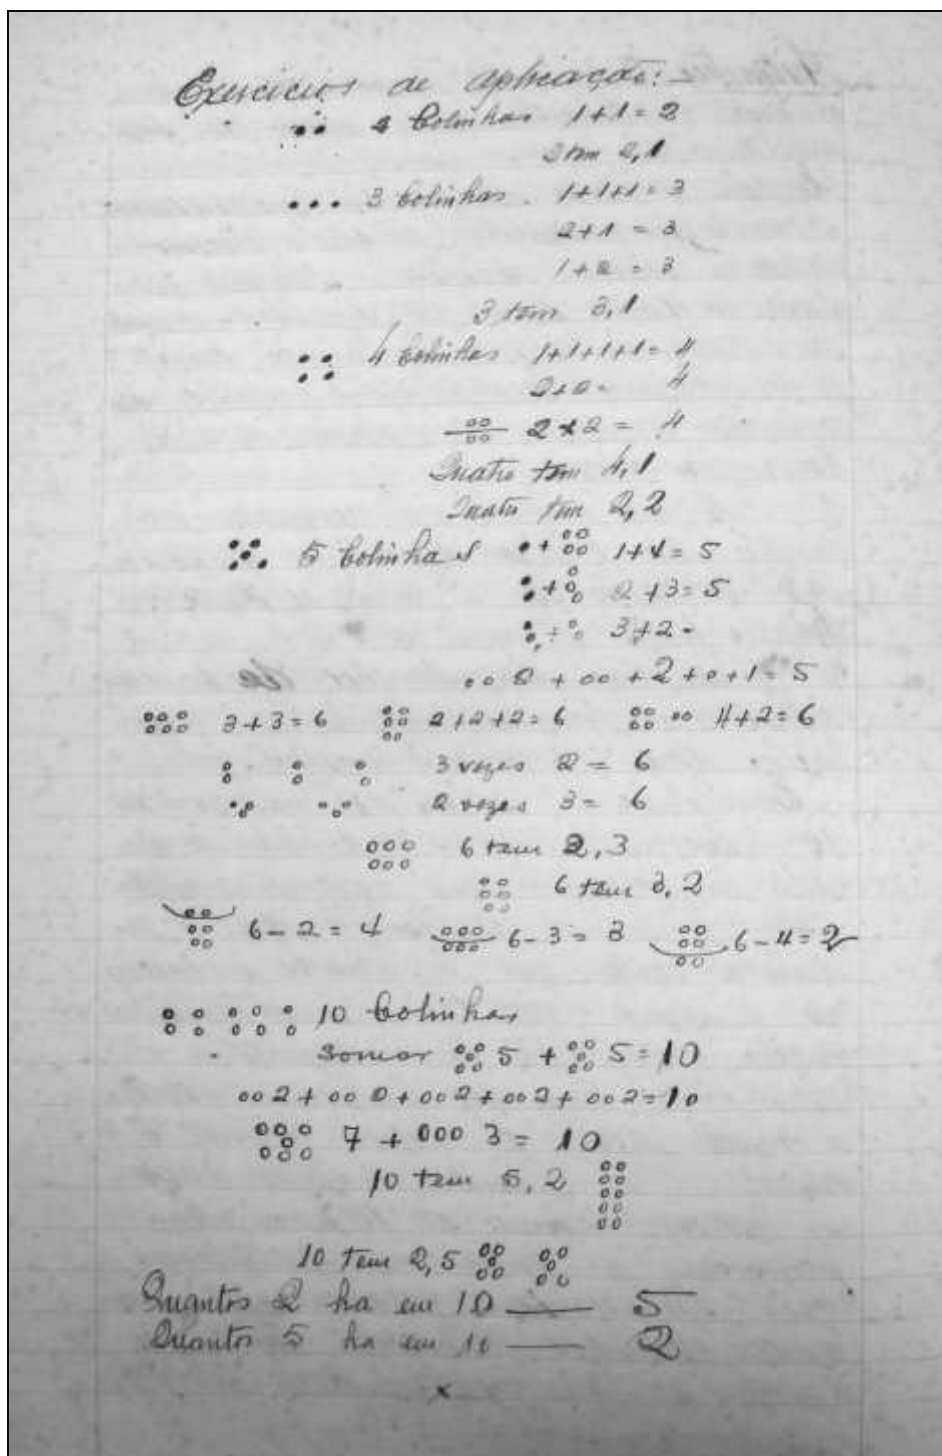 Exercicios de aplicação:-
2 bolinhas 1+1=2
2 tem 2,1
3 bolinhas. 1+1+1=3
2+1 = 3
1+2 = 3
3 tem 3,1
4 bolinhas 1+1+1+1= 4
2+2= 4
2+2 = 4
Quatro tem 4,1
Quatro tem 2,2
5 bolinhas + 1+4=5
+ 2+3=5
+ 3+2-
2 + 2 + 1=5
3+3=6 2+2+2=6 4+2=6
3 vezes 2 = 6
2 vezes 3= 6
6 tem 2,3
6 tem 3,2
6-2=4 6-3=3 6-4=2
10 bolinhas
Somar 5 + 5=10
2+ 2+ 2+ 2+ 2=10
7 + 3 = 10
10 tem 5,2
10 tem 2,5
Quantos 2 ha em 10 — 5
Quantos 5 ha em 10 — 2
x